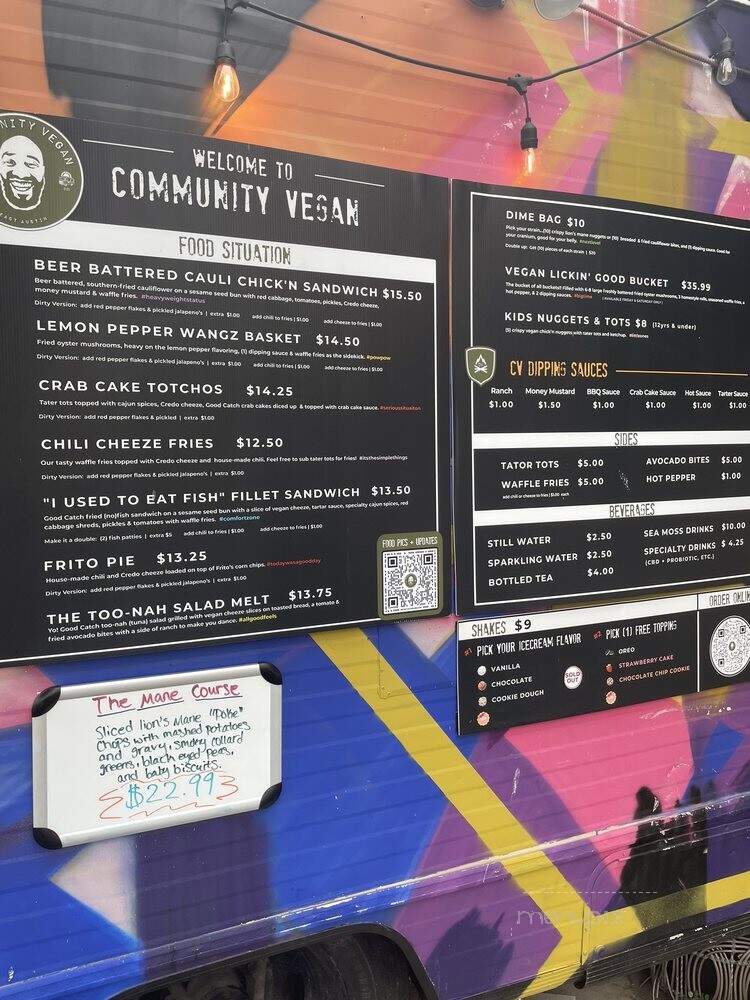 COMMUNITY VEGAN
EAST AUSTIN
WELCOME TO
COMMUNITY VEGAN
FOOD SITUATION
BEER BATTERED CAULI CHICK'N SANDWICH $15.50
Beer battered, southern-fried cauliflower on a sesame seed bun with red cabbage, tomatoes, pickles, Credo cheeze,
money mustard & waffle fries. #heavyweightstatus
Dirty Version: add red pepper flakes & pickled jalapeno's | extra $1.00 add chili to fries | $1.00 add cheeze to fries | $1.00
LEMON PEPPER WANGZ BASKET $14.50
Fried oyster mushrooms, heavy on the lemon pepper flavoring, (1) dipping sauce & waffle fries as the sidekick. #powpow
Dirty Version: add red pepper flakes & pickled jalapeno's | extra $1.00 add chili to fries | $1.00 add cheeze to fries | $1.00
CRAB CAKE TOTCHOS $14.25
Tater tots topped with cajun spices, Credo cheeze, Good Catch crab cakes diced up & topped with crab cake sauce. #serioussituaiton
Dirty Version: add red pepper flakes & pickled | extra $1.00
CHILI CHEEZE FRIES $12.50
Our tasty waffle fries topped with Credo cheeze and house-made chili. Feel free to sub tater tots for fries! #itsthesimplethings
Dirty Version: add red pepper flakes & pickled jalapeno's | extra $1.00
"I USED TO EAT FISH" FILLET SANDWICH $13.50
Good Catch fried (no)fish sandwich on a sesame seed bun with a slice of vegan cheeze, tartar sauce, specialty cajun spices, red
cabbage shreds, pickles & tomatoes with waffle fries. #comfortzone
Make it a double: (2) fish patties | extra $5 add chili to fries | $1.00 add cheeze to fries | $1.00
FRITO PIE $13.25
House-made chili and Credo cheeze loaded on top of Frito's corn chips. #todaywasagoodday
Dirty Version: add red pepper flakes & pickled jalapeno's | extra $1.00
THE TOO-NAH SALAD MELT $13.75
Yo! Good Catch too-nah (tuna) salad grilled with vegan cheeze slices on toasted bread, a tomato &
fried avocado bites with a side of ranch to make you dance. #allgoodfeels
FOOD PICS + UPDATES
DIME BAG $10
Pick your strain...(10) crispy lion's mane nuggets or (10) breaded & fried cauliflower bites, and (1) dipping sauce. Good for
your cranium, good for your belly. #nextlevel
Double up: Get (10) pieces of each strain | $20
VEGAN LICKIN' GOOD BUCKET $35.99
The bucket of all buckets! Filled with 6-8 large freshly battered fried oyster mushrooms, 3 homestyle rolls, seasoned waffle fries, a
hot pepper, & 2 dipping sauces. #bigtime (AVAILABLE FRIDAY & SATURDAY ONLY)
KIDS NUGGETS & TOTS $8 (12yrs & under)
(5) crispy vegan chick'n nuggets with tater tots and ketchup. #littleones
CV DIPPING SAUCES
Ranch Money Mustard BBQ Sauce Crab Cake Sauce Hot Sauce Tarter Sauce
$1.00 $1.50 $1.00 $1.00 $1.00 $1.00
SIDES
TATOR TOTS $5.00 AVOCADO BITES $5.00
WAFFLE FRIES $5.00 HOT PEPPER $1.00
add chili or cheeze to fries | $1.00 each
BEVERAGES
STILL WATER $2.50 SEA MOSS DRINKS $10.00
SPARKLING WATER $2.50 SPECIALTY DRINKS $ 4.25
BOTTLED TEA $4.00 (CBD + PROBIOTIC, ETC.)
SHAKES $9
ORDER ONLIN
#1 PICK YOUR ICECREAM FLAVOR
VANILLA
CHOCOLATE
COOKIE DOUGH
SOLD OUT
#2 PICK (1) FREE TOPPING
OREO
STRAWBERRY CAKE
CHOCOLATE CHIP COOKIE
The Mane Course
Sliced lion's Mane "Poke"
Chops with mashed potatoes
and gravy, smoky collard
greens, black eyed peas,
and baby biscuits.
$22.99